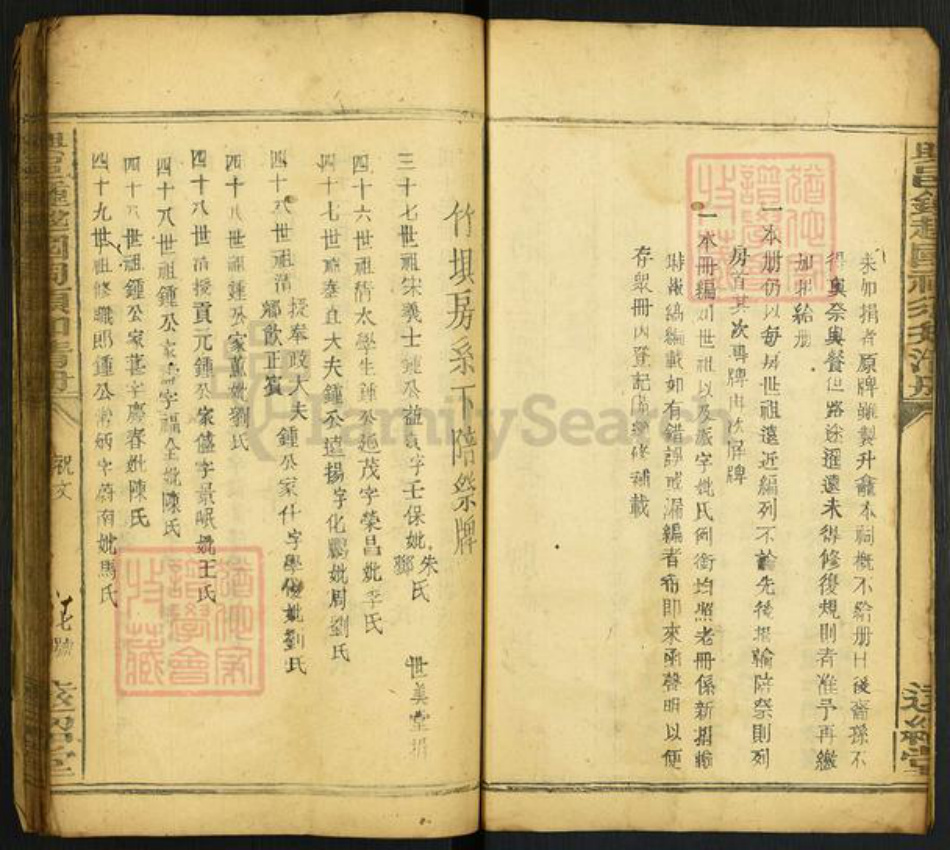 未加捐者原牌雖製升龕本祠概不給册日後裔孫不
得與祭與餐但路途遥遠未得修復規則者准予再繳
加捐給册
一本册仍以每房世祖遠近編列不論先後捐輸陪祭則列
房首其次專牌內次屏牌
一本冊編列世祖以及派字妣氏例銜均照老冊係新捐
時報稿編載如有錯誤或漏編者希即來函聲明以便
存衆冊內登記 修補載
遠紹堂
竹埧房系下陪祭牌
三十七世祖宋義士鍾公益 字壬保妣朱鄧氏 世美堂捐
四十六世祖清太學生鍾公 茂字榮昌妣李氏
四十七世 奉直大夫鍾公遠揚字化鵬妣周劉氏
四十八世祖清授奉政大夫鄉飲正賓鍾公家什字學俊妣劉氏
四十八世 鍾公家萬妣劉氏
四十八世 授貢元鍾公家儲字景岷妣王氏
四十八世祖鍾公家 字福全妣陳氏
四十八世祖鍾公家 字慶春妣陳氏
四十九世祖修職郎鍾公常炳字蔚南妣馬氏
祝文
遠紹堂
FamilySearch